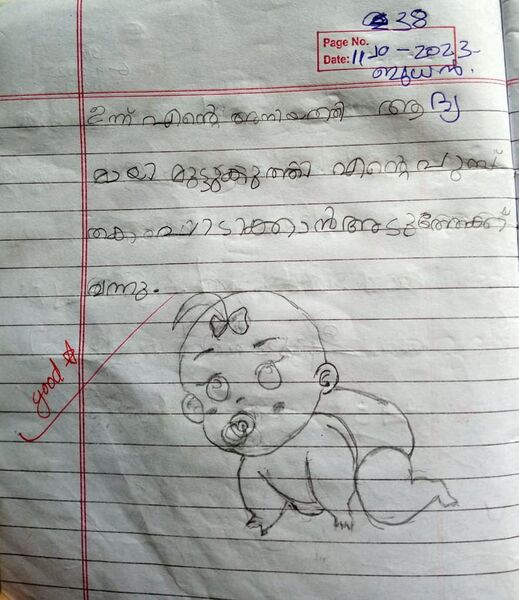 38
Page No.
Date: 11-10-2023
ബുധൻ.
ഇന്ന് എന്റെ അനിയത്തി ആദ്യ
മായി മുട്ടുകുത്തി എന്റെ പുസ്
തകം പിടിക്കാൻ അടുത്തേക്ക്
വന്നു.
good